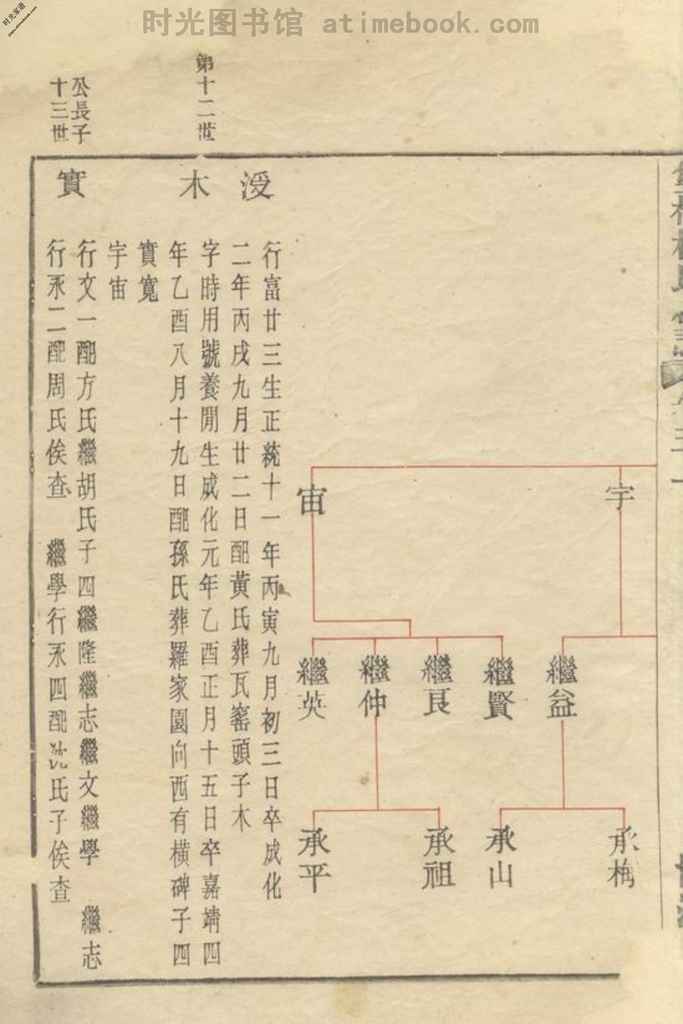 时光图书馆 atimebook.com
时光家谱
www.atimebook.com
宇
宙
繼益
繼賢
繼良
繼仲
繼英
承梅
承山
承祖
承平
第十二世
浸
行富廿三生正統十一年丙寅九月初三日卒成化
二年丙戌九月廿二日配黃氏葬瓦窰頭子木
木
字時用號養閒生成化元年乙酉正月十五日卒嘉靖四
年乙酉八月十九日配孫氏葬羅家園向西有橫碑子四
實寬
宇宙
公長子
十三世
實
行文一配方氏繼胡氏子四繼隆繼志繼文繼學 繼志
行永二配周氏俟查 繼學行永四配沈氏子俟查